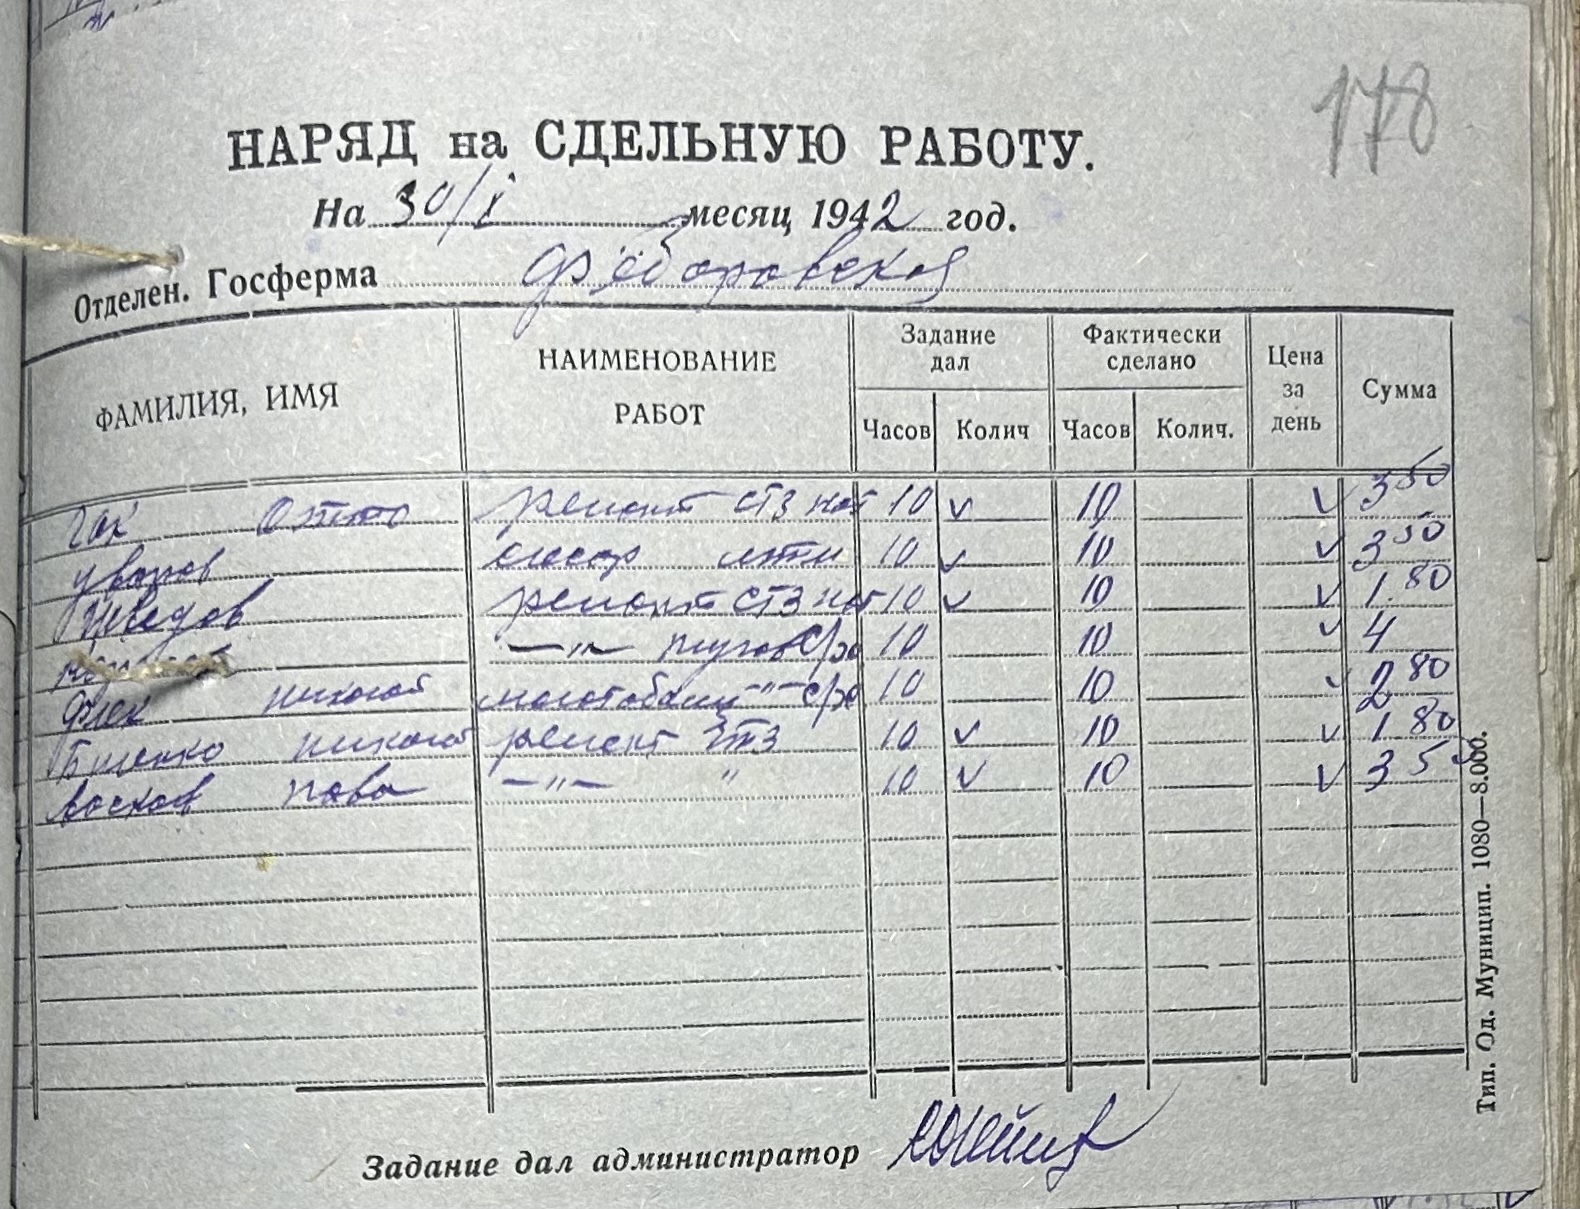 178
НАРЯД на СДЕЛЬНУЮ РАБОТУ.
На 30/I месяц 1942 год.
Отделен. Госферма Фёдоровская
ФАМИЛИЯ, ИМЯ НАИМЕНОВАНИЕ РАБОТ Задание дал Фактически сделано Цена за день Сумма
Часов Колич Часов Колич.
Гах ремонт СТЗ нат 10 v 10 v 3 50
Уваров 10 v 10 v 3 50
Шведов ремонт СТЗ нат 10 v 10 v 1.80
—„— плугов с/хо 10 10 v 4
Флек николай —„— с/хо 10 10 v 2 80
николай ремонт СТЗ 10 v 10 v 1 80
Павел —„— „ 10 v 10 v 3 50
Задание дал администратор
Тип. Од. Муницип. 1080—8.000.